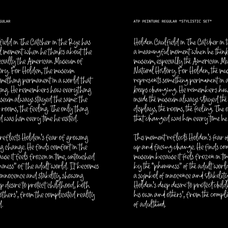 GULAR
field in The Catcher in the Rye has
l moment when he thinks about the
cially the American Museum of
ory. For Holden, the museum
mething permanent in a world that
ng. He remembers how everything
useum always stayed the same: the
rooms, the feeling. The only thing
d was him every time he visited.
reflects Holden's fear of growing
g change. He finds comfort in the
use it feels frozen in time, untouched
niness" of the adult world. It becomes
nnocence and stability, showing
p desire to protect childhood, both
thers', from the complicated reality
d.
ATF PEINTURE REGULAR "STYLISTIC SET"
Holden Caulfield in The Catcher in th
a meaningful moment when he think
museum, especially the American Mu
Natural History. For Holden, the mu
represents something permanent in a
keeps changing. He remembers how
inside the museum always stayed th
displays, the rooms, the feeling. The o
that changed was him every time he
This moment reflects Holden's fear o
up and facing change. He finds com
museum because it feels frozen in tim
by the "phoniness" of the adult world
a symbol of innocence and stability
Holden's deep desire to protect childh
his own and others', from the compli
of adulthood.